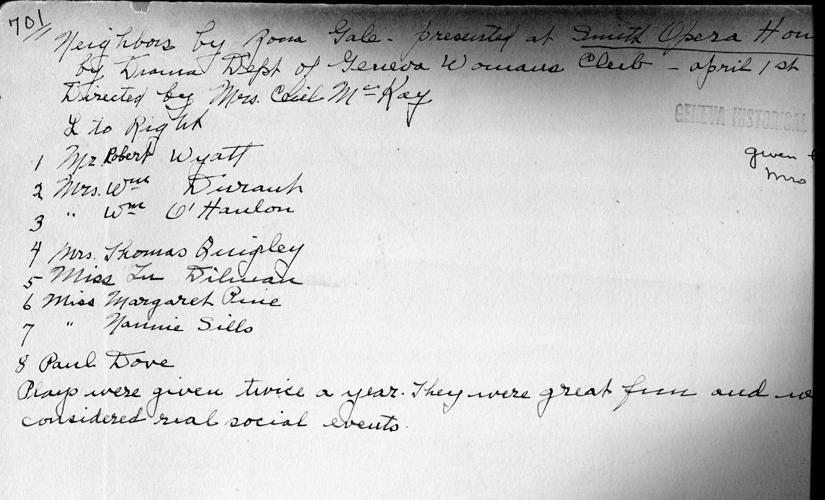 701
Neighbors by Zona Gale - presented at Smith Opera Hou
by Drama Dept of Geneva Womans Club - april 1st
Directed by Mrs. Cecil McKay
L to Right
GENEVA HISTORICAL
given
Mrs
1 Mr Robert Wyatt
2 Mrs. Wm Durant
3 " Wm O'Hanlon
4 Mrs. Thomas Quigley
5 Miss Lu Dilman
6 Miss Margaret
7 " Nannie Sills
8 Paul Dove
Plays were given twice a year. They were great fun and we
considered real social events.